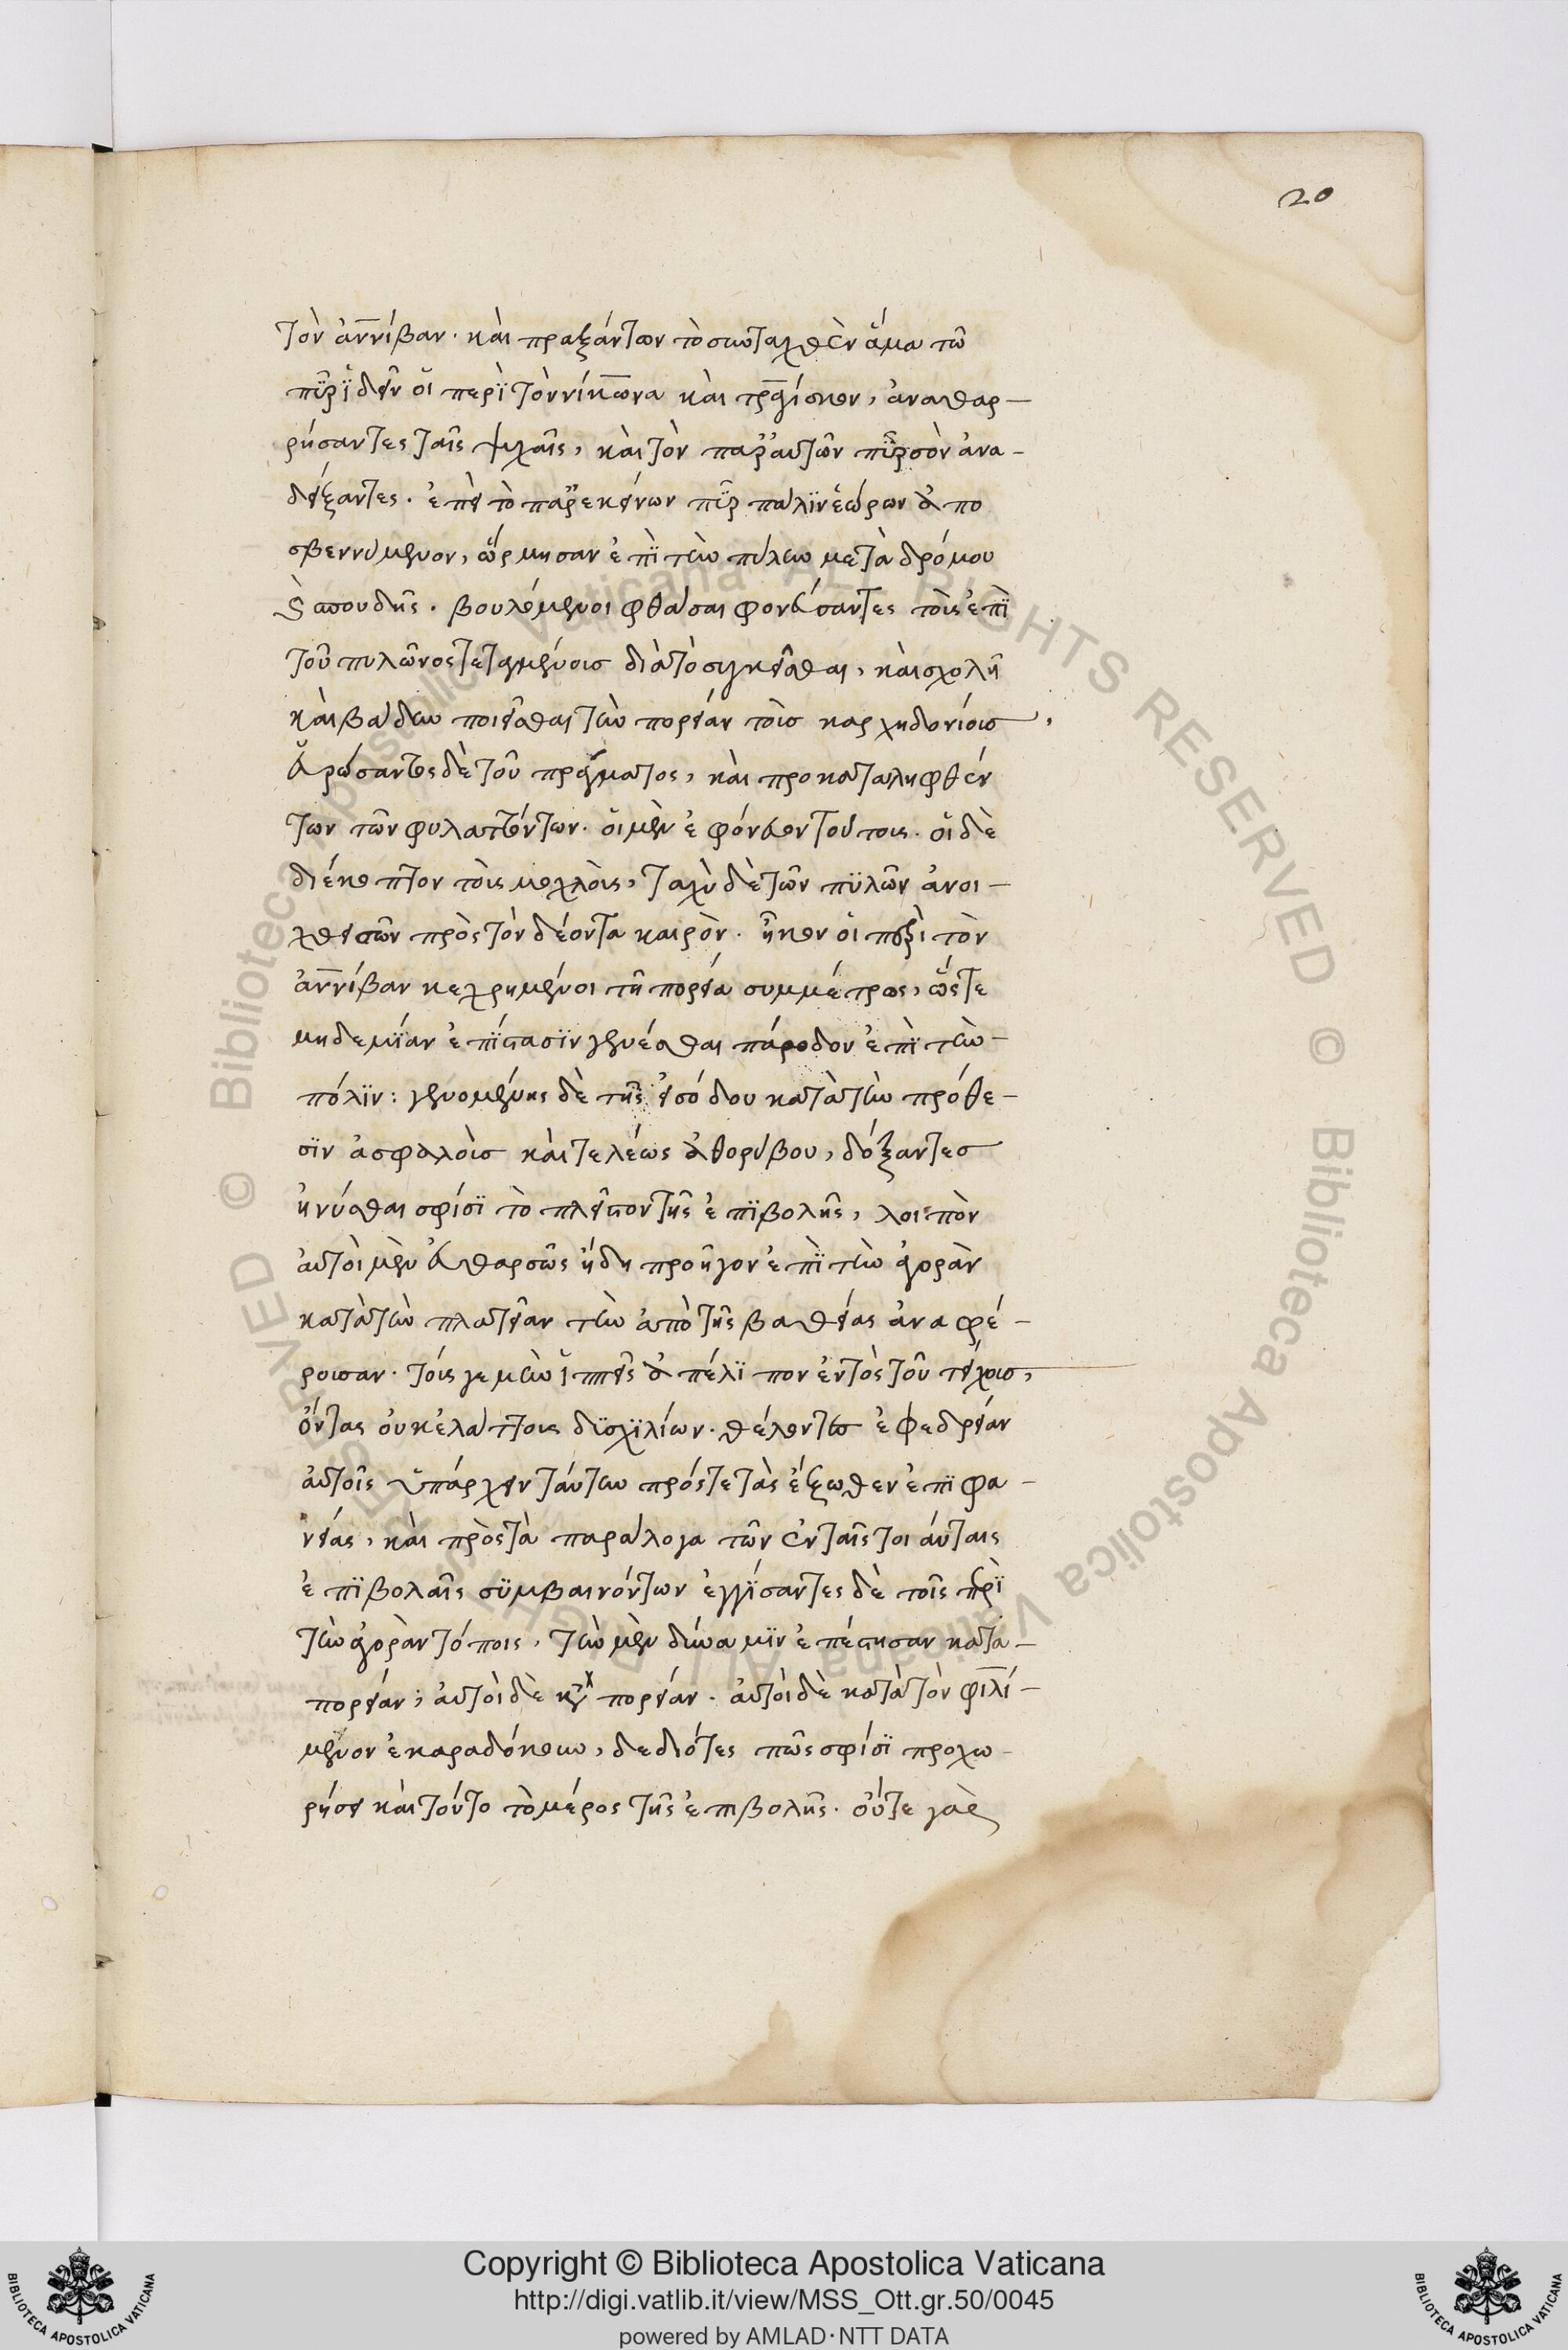 20
τὸν ἀννίβαν· καὶ πραξάντων τὸ συνταχθὲν ἅμα τῶ
πῦρ ἰδεῖν οἱ περὶ τὸν νίκωνα καὶ τραγίσκον, ἀναθαρ–
ρήσαντες ταῖς ψυχαῖς, καὶ τὸν παρ' αὐτῶν πῦρσὸν ἀνα–
δείξαντες· ἐπεὶ τὸ παρ' ἐκείνων πῦρ πάλϊν ἑώρων ἀπο
σβεννύμενον, ὥρμησαν ἐπὶ τὴν πύλην μετὰ δρόμου
καὶ σπουδῆς· βουλόμενοι φθάσαι φονεύσαντες τοὺς ἐπὶ
τοῦ πυλῶνος τεταγμένους διὰ τὸ συγκεῖσθαι, καὶ σχολῆ
καὶ βάδην ποιεῖσθαι τὴν πορείαν τοὺς καρχηδονίους.
εὐρώσαντες δὲ τοῦ πράγματος, καὶ προκαταληφθέν
των τῶν φυλαττόντων· οἱ μὲν ἐφόνευον τούτους· οἱ δὲ
διέκοπτον τοὺς μοχλοὺς, ταχὺ δὲ τῶν πϋλῶν ἀνοι–
χθεισῶν πρὸς τὸν δέοντα καιρὸν· ἧκον οἱ περὶ τὸν
ἀννίβαν κεχρημένοι τῆ πορεία συμμέτρως, ὥστε
μηδεμϊαν ἐπίστασϊν γενέσθαι πάροδον ἐπὶ τὴν–
πόλϊν: γενομένης δὲ τῆς εἰσόδου κατὰ τὴν πρόθε–
σϊν ἀσφαλοῦς καὶ τελέως ἀθορύβου, δόξαντες
ἠνύσθαι σφίσϊ τὸ πλεῖστον τῆς ἐπϊβολῆς, λοιπὸν
αὐτοὶ μὲν εὐθαρσῶς ἤδη προῆγον ἐπὶ τὴν ἀγορὰν
κατὰ τὴν πλατεῖαν τὴν ἀπὸ τῆς βαθείας ἀναφέ–
ρουσαν· τούς γε μὴν ἱππεῖς ἀπέλϊπον ἐντὸς τοῦ τείχους,
ὄντας οὐκ ἐλάττους δϊσχϊλίων· θέλοντες ἐφεδρείαν
αὐτοῖς ὑπάρχειν ταύτην πρός τε τὰς ἔξωθεν ἐπϊφα–
νείας, καὶ πρὸς τὰ παράλογα τῶν ἐν ταῖς τοιαύταις
ἐπϊβολαῖς συμβαινόντων ἐγγϊσαντες δὲ τοῖς περὶ
τὴν ἀγορὰν τόποις, τὴν μὲν δύναμϊν ἐπέστησαν κατὰ–
πορείαν; αὐτοὶ δὲ κατὰ πορείαν· αὐτοὶ δὲ κατὰ τὸν φιλί–
μενον ἐκαραδόκουν, δεδιότες πῶς σφίσϊ προχω–
ρήσει καὶ τοῦτο τὸ μέρος τῆς ἐπιβολῆς· οὔτε γὰρ
Copyright © Biblioteca Apostolica Vaticana
http://digi.vatlib.it/view/MSS_Ott.gr.50/0045
powered by AMLAD·NTT DATA